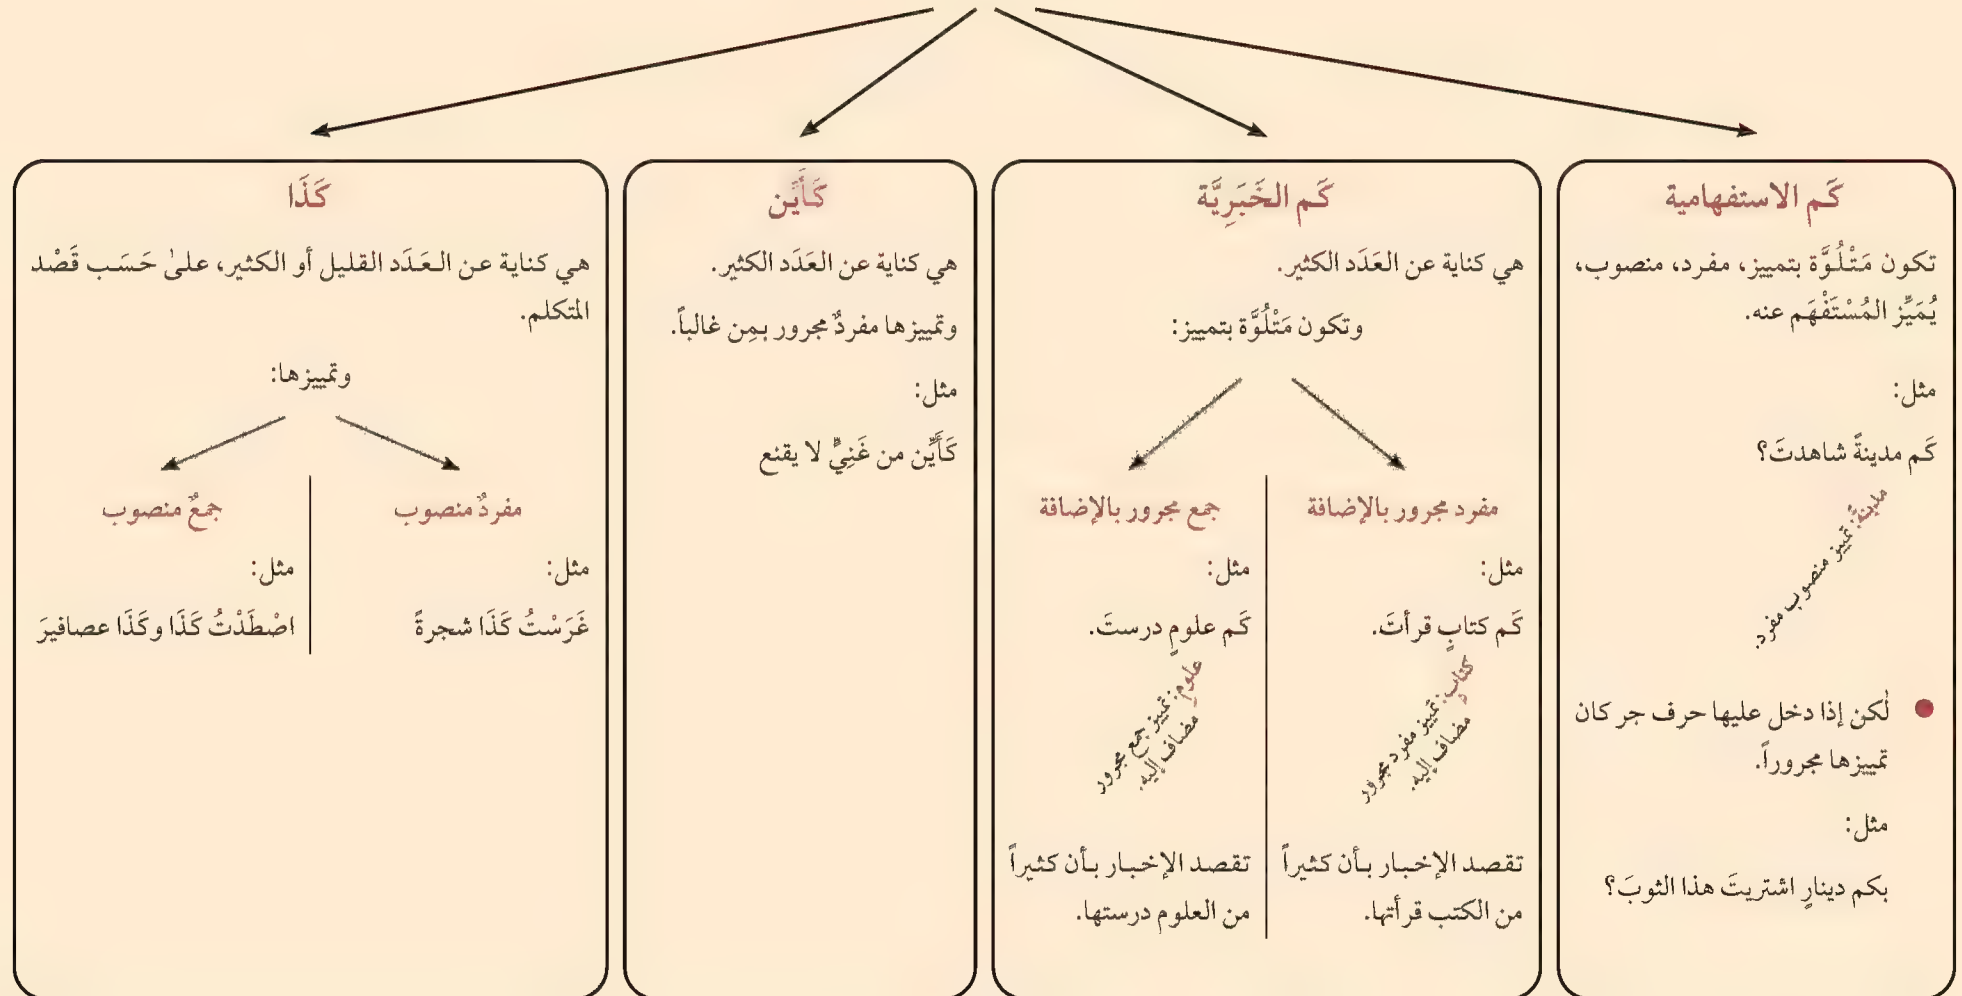 كَم الاستفهامية
تكون مَتْلُوَّة بتمييز، مفرد، منصوب،
يُمَيِّز المُسْتَفْهَم عنه.
مثل:
كَم مدينةً شاهدتَ؟
مدينةً: تمييز منصوب مفرد.
لٰكن إذا دخل عليها حرف جر كان
تمييزها مجروراً.
مثل:
بكم دينارٍ اشتريتَ هذا الثوبَ؟
كَم الخَبَرِيَّة
هي كناية عن العَدَد الكثير.
وتكون مَتْلُوَّة بتمييز:
مفرد مجرور بالإضافة
مثل:
كَم كتابٍ قرأتَ.
كتابٍ: تمييز مفرد مجرور
مضاف إليه.
تقصد الإخبار بأن كثيراً
من الكتب قرأتها.
جمع مجرور بالإضافة
مثل:
كَم علومٍ درستَ.
علومٍ: تمييز جمع مجرور
مضاف إليه.
تقصد الإخبار بأن كثيراً
من العلوم درستها.
كَأَيِّن
هي كناية عن العَدَد الكثير.
وتمييزها مفردٌ مجرور بمِن غالباً.
مثل:
كَأَيِّن من غَنِيٍّ لا يقنع
كَذَا
هي كناية عن العَدَد القليل أو الكثير، علىٰ حَسَب قَصْد
المتكلم.
وتمييزها:
مفردٌ منصوب
مثل:
غَرَسْتُ كَذَا شجرةً
جمعٌ منصوب
مثل:
اصْطَدْتُ كَذَا وكَذَا عصافيرَ